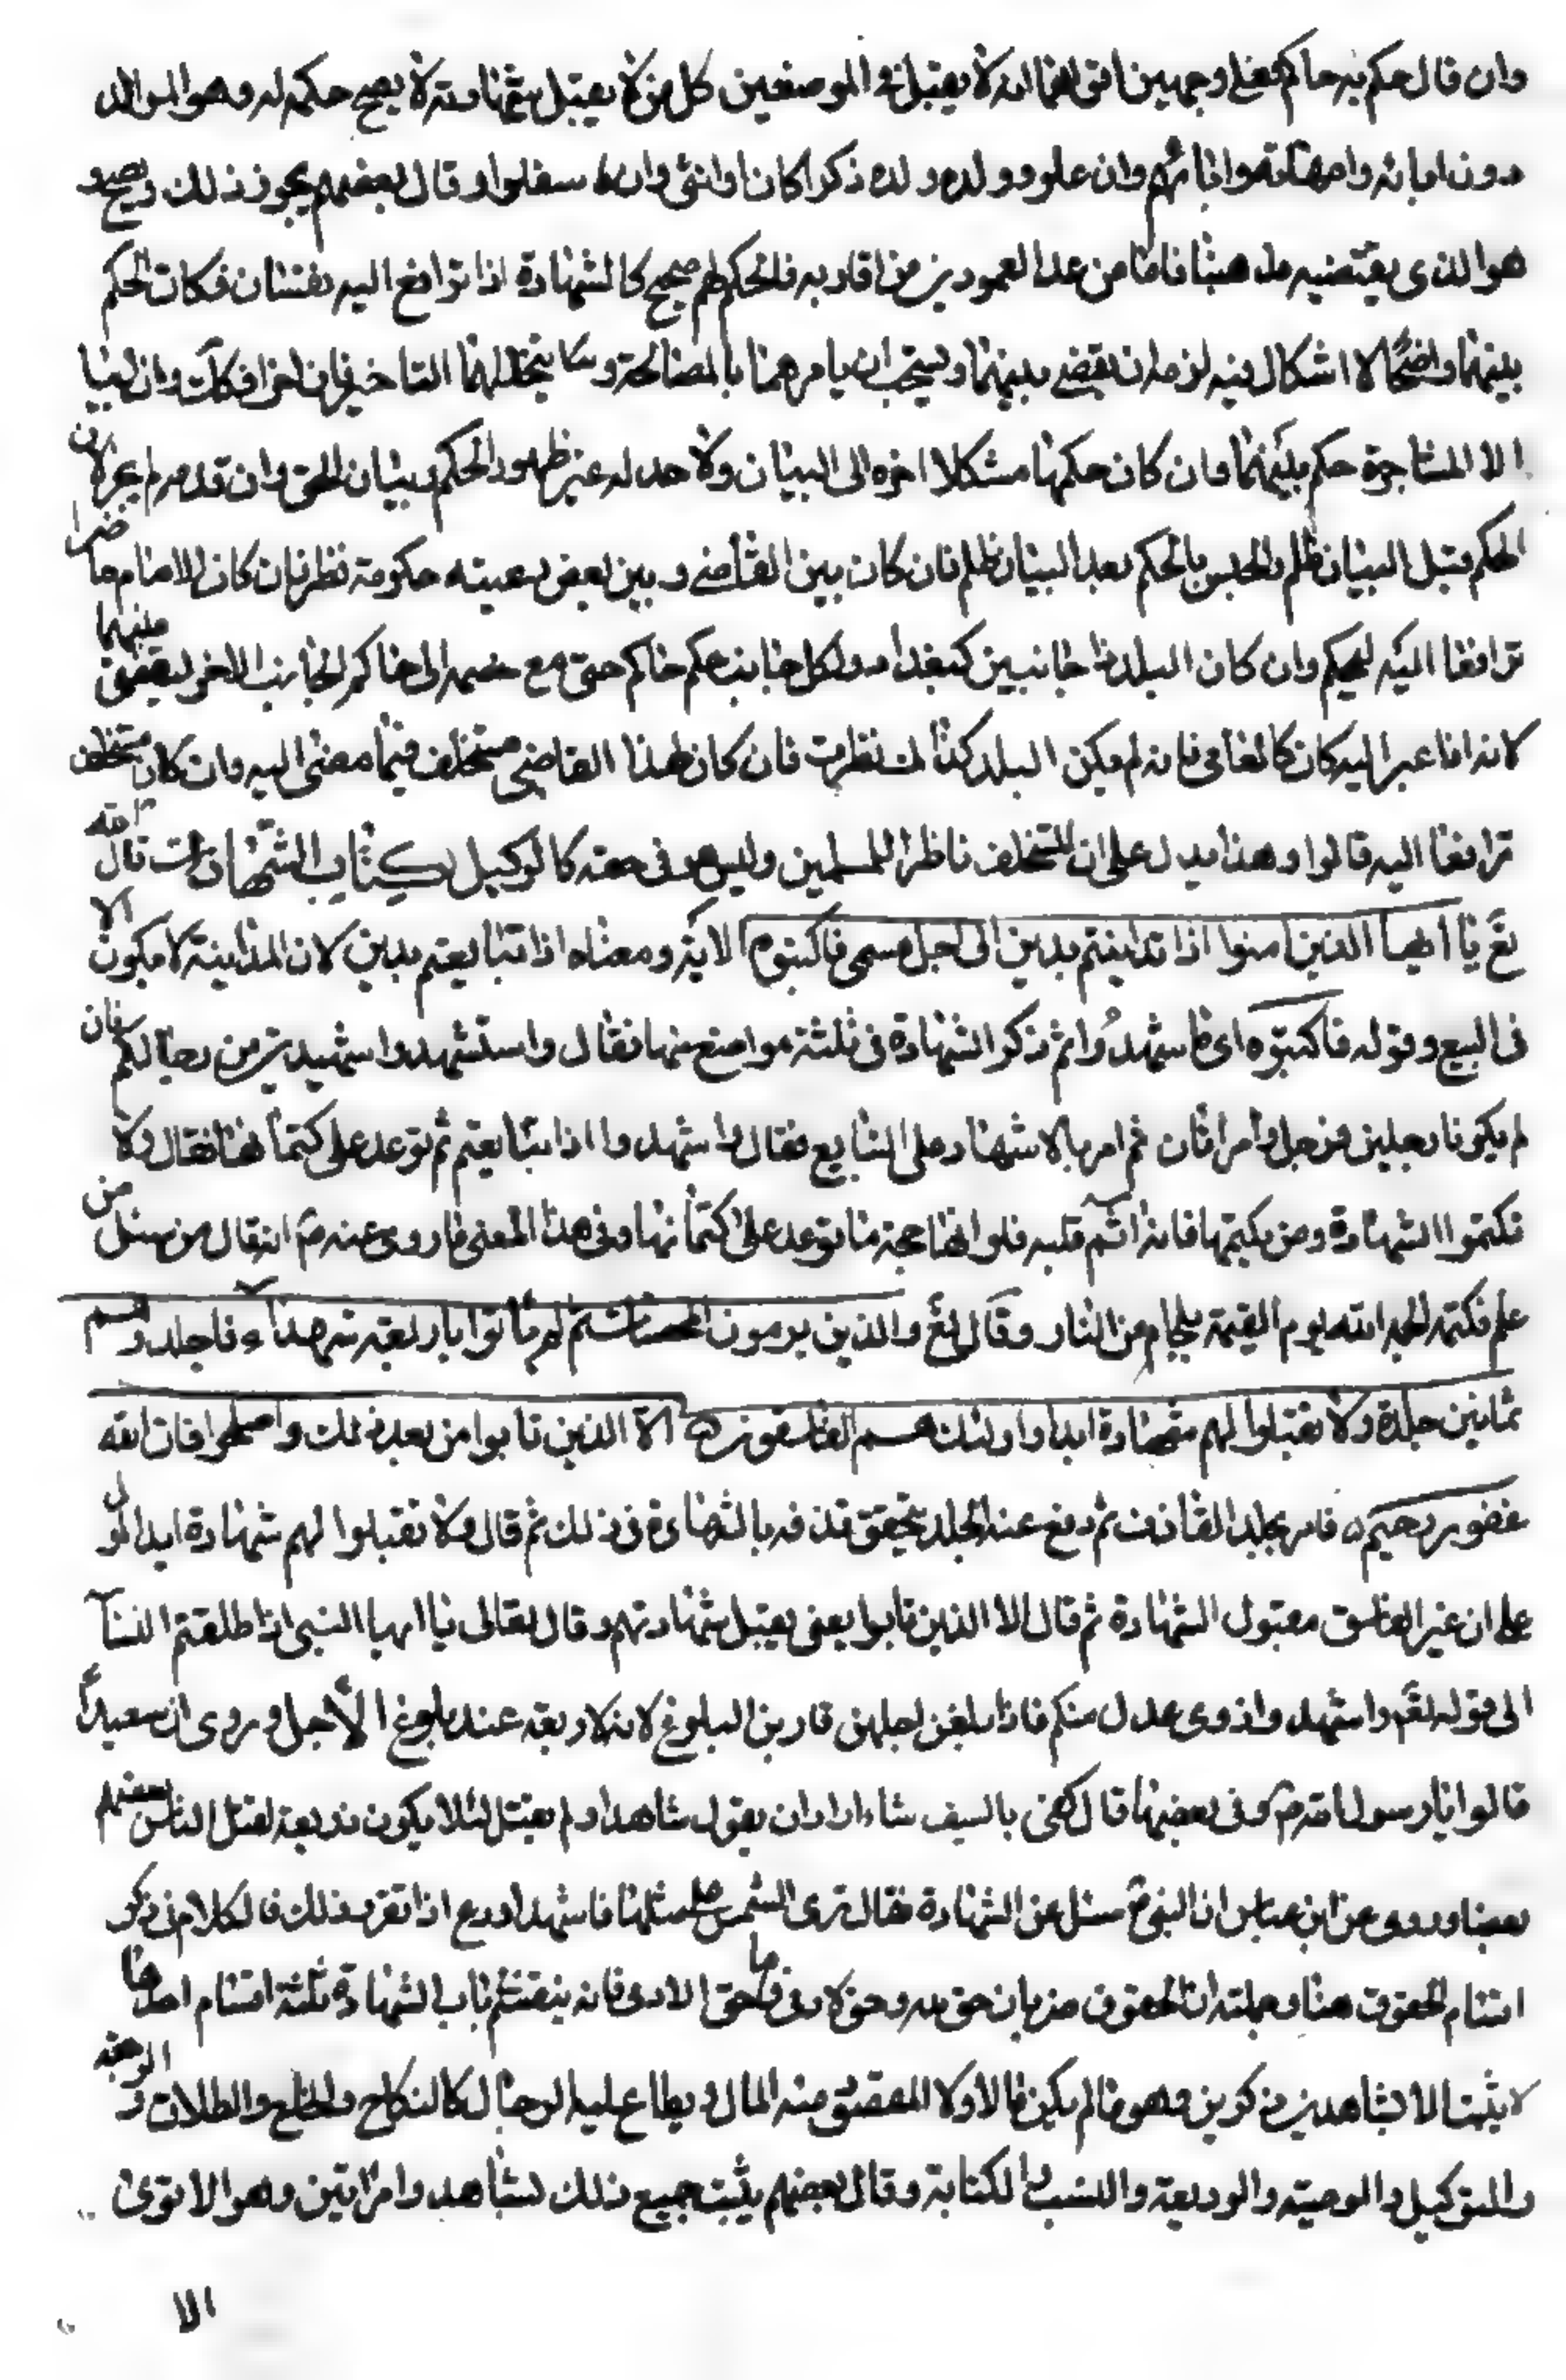 وان قال حكم به حاكم فعلى وجهين اقواهما انه لا يقبل في الموضعين كل من لا يقبل شهادته لا يصح حكمه له وهو الوالد
دون ابائه وامهاته وابائهم وان علوو وولده ولده ذكرا كان او انثى وان سفلوا وقال بعضهم يجوز ذلك ويصح و
هو الذي يقتضيه مذهبنا فاما من عدا العمودين من اقاربه فالحكم لهم صحيح كالشهادة اذا ترافع اليه نفسان فكان الحكم
بينهما واضحا لا اشكال فيه لزمه ان يقضي بينهما ويستحب ان يامرهما بالمصالحة و يتحللهما التاخير فان اخرا فكلت وان ابيا
الا المناجزة حكم بينهما وان كان حكمها مشكلا اخره الى البيان ولا حد له غير ظهور الحكم وبيان الحق وان قدمه لم يجز لان
الحكم قبل البيان ظلم والحبس بالحكم بعد البيان ظلم فان كان بين القاضي وبين بعض رعيته حكومة نظر فان كان الامام حاضرا
ترافعا اليه ليحكم وان كان البلد ذا جانبين كبغداد ولكل جانب حاكم حتى مع خصمه الى حاكم الجانب الاخر ليقضي بينهما
لانه اذا عبر اليه كان كالعامي فانه لم يكن البلد كذلك نظرت فان كان لهذا القاضي مستخلف فيما مضى اليه وان كان مستخلف
ترافعا اليه قالوا وهذا يدل على ان المستخلف ناظر للمسلمين وليس هو في حقه كالوكيل كتاب الشهادات قال الله
تع يا ايها الذين امنوا اذا تداينتم بدين الى اجل مسمى فاكتبوه الاية ومعناه اذا تبايعتم بدين لان المداينة لا يكون الا
في البيع وقوله فاكتبوه اي فاشهدوا ثم ذكر الشهادة في ثلثة مواضع منها فقال واستشهدوا شهيدين من رجالكم فان
لم يكونا رجلين فرجل وامراتان ثم امر بالاشهاد على التبايع فقال واشهدوا اذا تبايعتم ثم توعد على كتمانها فقال ولا
تكتموا الشهادة ومن يكتمها فانه اثم قلبه فلولا انها حجة ما توعد على كتمانها وفي هذا المعنى ما روي عنه ص انه قال من سئل من
علم فكتمه الجمه الله يوم القيمة بلجام من النار وقال تع والذين يرمون المحصنات ثم لم ياتوا باربعة شهداء فاجلدوهم
ثمانين جلدة ولا تقبلوا لهم شهادة ابدا واولئك هم الفاسقون الا الذين تابوا من بعد ذلك واصلحوا فان الله
غفور رحيم فامر بجلد القاذف ثم رفع عنه الجلد بتحقق قذفه بالشهادة في ذلك ثم قال ولا تقبلوا لهم شهادة ابدا لو ل
على ان غير الفاسق مقبول الشهادة ثم قال الا الذين تابوا يعني يقبل شهادتهم وقال تعالى يا ايها النبي اذا طلقتم النسآ
الى قوله تع واشهدوا ذوي عدل منكم فاذا بلغن اجلهن قاربن البلوغ لانه لا رجعة عند بلوغ الاجل وروي ان سعيدا
قالوا يا رسول الله ص وفي بعضها قال كفى بالسيف شاء اراد ان يقول شاهدا ولم يقل لئلا يكون ذريعة لقتل الناس بعضهم
بعضا وروي عن ابن عباس ان النبي ص سئل عن الشهادة فقال ترى الشمس على مثلها فاشهد او دع اذا تقرر ذلك فالكلام في ذكر
اقسام الحقوق هنا وجملته ان الحقوق ضربان حق لله وحق لادمي فاما حق الادمي فانه ينقسم في باب الشهادة ثلثة اقسام احدها
لا يثبت الا بشاهدين ذكرين وهو ما لم يكن مالا ولا المقصود منه المال ويطلع عليه الرجال كالنكاح والخلع والطلاق و الرجعة
والتوكيل والوصية والوديعة والنسب والكتابة وقال بعضهم يثبت جميع ذلك بشاهد وامراتين وهو الاقوى
الا